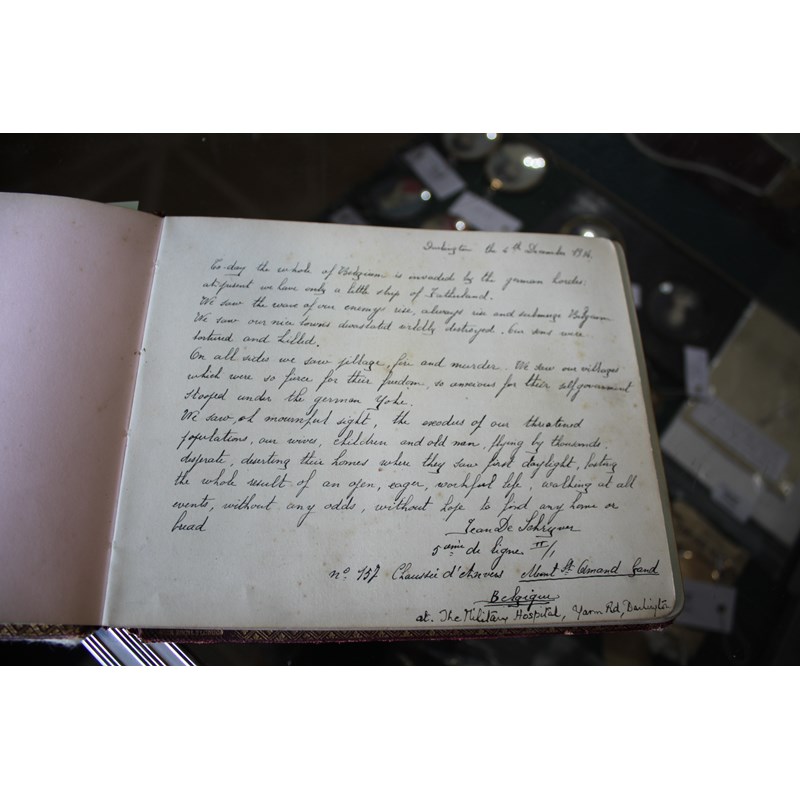 Darlington the 6th December 1914.
To-day the whole of Belgium is invaded by the german hordes.
at present we have only a little strip of Fatherland.
We saw the wave of our enemys rise, always rise and submerge Belgium
We saw our nice towns devastated, wildly destroyed. Our sons were
tortured and killed.
On all sides we saw pillage, fire and murder. We saw our villages
which were so fierce for their freedom, so anxious for their selfgovernment
stooped under the german yoke.
We saw, oh mournful sight, the exodus of our threatened
populations, our wives, children and old men, flying by thousands
desperate, deserting their homes where they saw first daylight, losting
the whole result of an open, eager, workful life, walking at all
events, without any odds, without hope to find any home or
bread
Jean De Schryver
5eme de ligne II/1
no 157 Chaussée d'Anvers Mont St Amand Gand
Belgique
at. The Military Hospital, Yarm Rd, Darlington